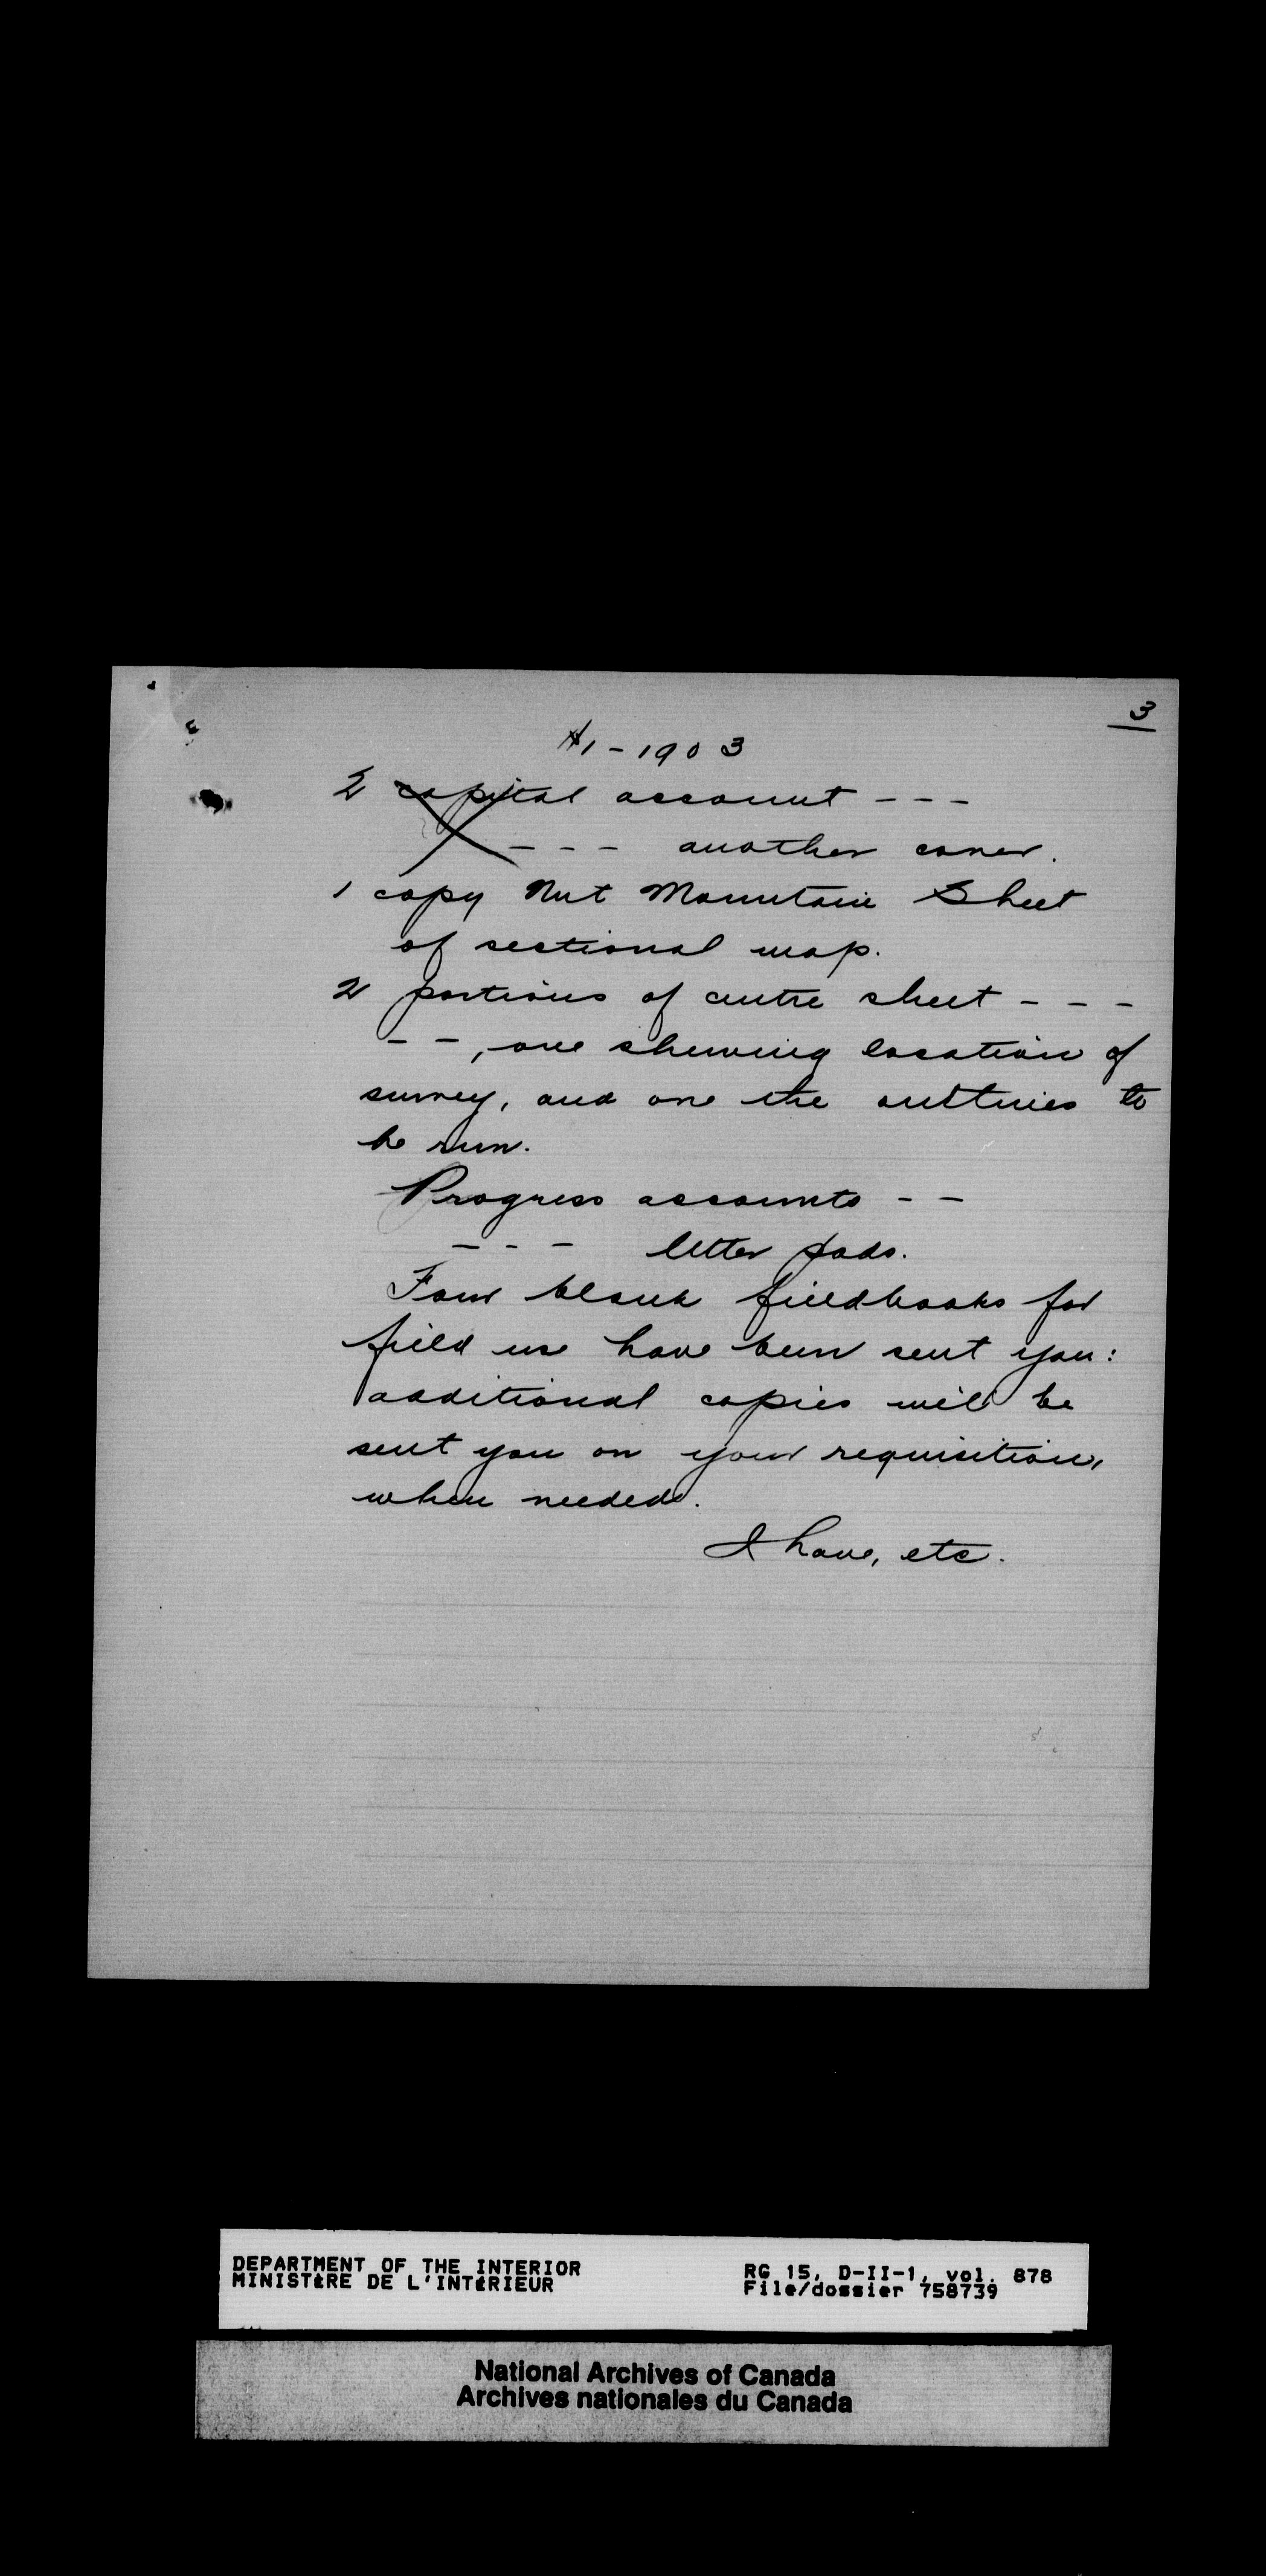 3
#1-1903
2 capital account - - -
- - - another cover.
1 copy Nut Mountain Sheet
of sectional map.
2 portions of entire sheet - - -
- -, one shewing location of
survey, and one the outlines to
be run.
Progress accounts - -
- - - letter pads.
Four blank fieldbooks for
field use have been sent you:
additional copies will be
sent you on your requisition,
when needed.
I have, etc.
DEPARTMENT OF THE INTERIOR
MINISTÈRE DE L'INTÉRIEUR
RG 15, D-II-1, vol. 878
File/dossier 758739
National Archives of Canada
Archives nationales du Canada